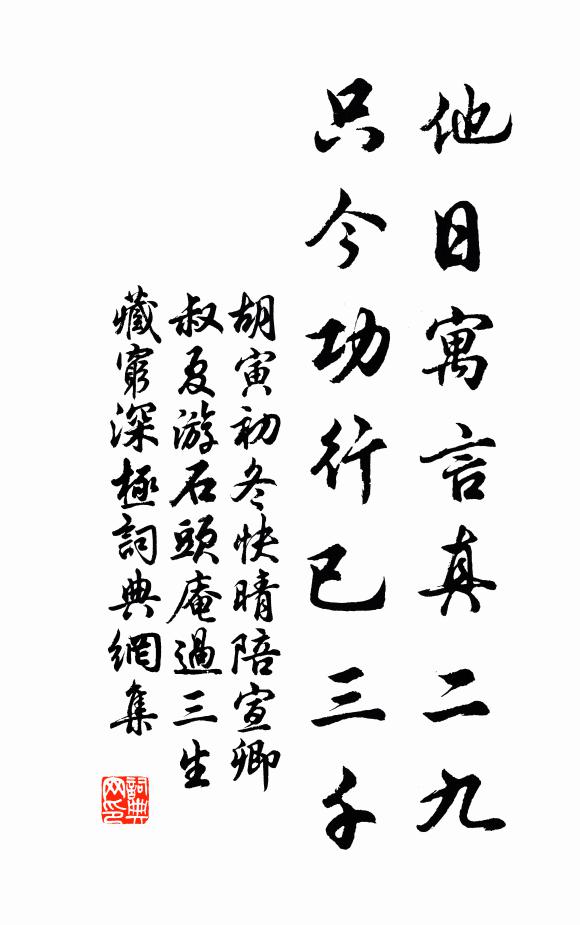 他日寓言真二九
只今功行已三千
胡寅初冬快晴陪宣卿
叔夏游石頭庵過三生
藏窮深極詞典網集
詞典网印